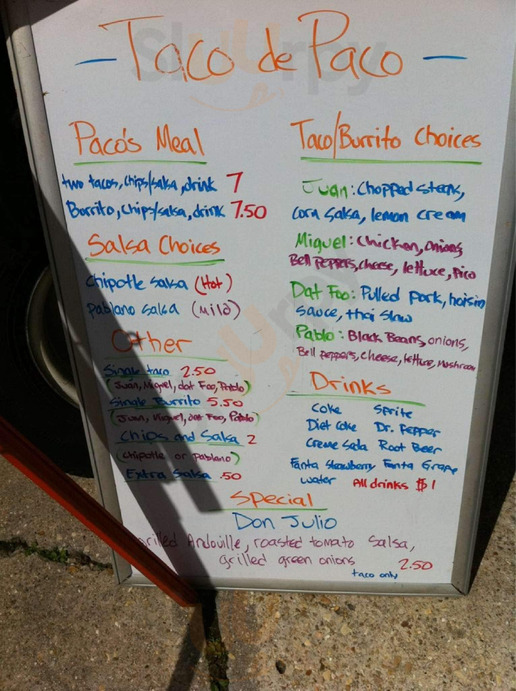 Taco de Paco
Paco's Meal
two tacos, chips/salsa, drink 7
Burrito, chips/salsa, drink 7.50
Salsa Choices
chipotle salsa (Hot)
pablano salsa (Mild)
Other
Single taco 2.50
(Juan, Miguel, dat Foo, Pablo)
Single Burrito 5.50
(Juan, Miguel, dat Foo, Pablo)
Chips and Salsa 2
(chipotle or Pablano)
Extra Salsa .50
Taco/Burrito Choices
Juan: Chopped steak,
corn salsa, lemon cream
Miguel: Chicken, onions,
Bell Peppers, cheese, lettuce, Pico
Dat Foo: Pulled Pork, hoisin
sauce, thai slaw
Pablo: Black Beans, onions,
Bell peppers, cheese, lettuce, mushroom
Drinks
Coke Sprite
Diet Coke Dr. Pepper
Creme Soda Root Beer
Fanta Strawberry Fanta Grape
water All drinks $1
Special
Don Julio
Grilled Andouille, roasted tomato salsa,
grilled green onions 2.50
taco only